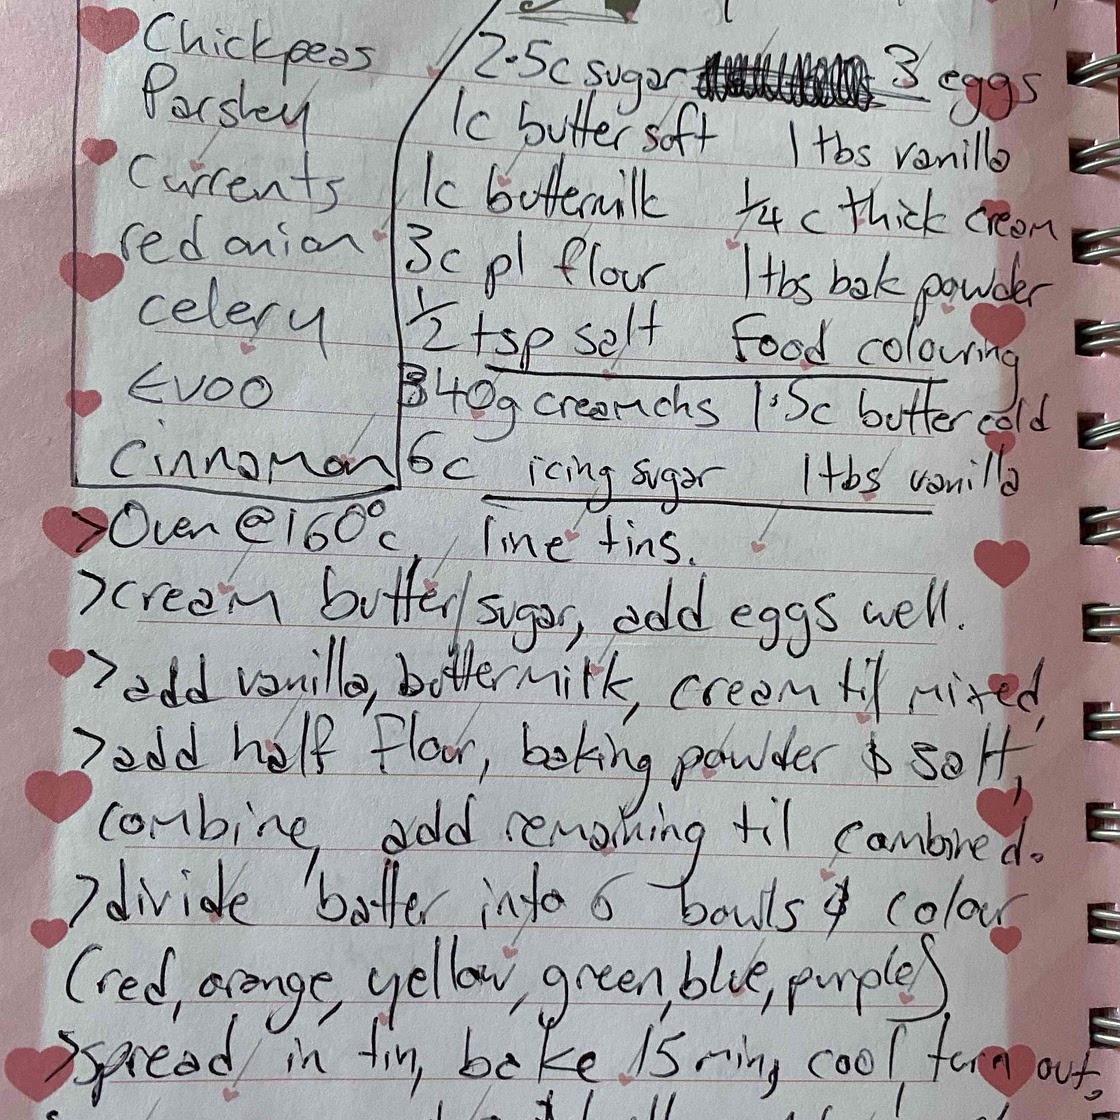 Chickpeas
Parsley
Currents
red onion
celery
EVOO
cinnamon
2.5c sugar 3 eggs
1c butter soft 1tbs vanilla
1c buttermilk 1/4 c thick cream
3c pl flour 1tbs bak powder
1/2 tsp salt Food colouring
340g creamchs 1.5c butter cold
6c icing sugar 1tbs vanilla
>Oven @ 160°c, line tins.
>cream butter/sugar, add eggs well.
>add vanilla, buttermilk, cream til mixed,
>add half flour, baking powder & salt,
combine, add remaining til combined.
>divide batter into 6 bowls & colour
(red, orange, yellow, green, blue, purple)
>spread in tin, bake 15 min, cool, turn out.